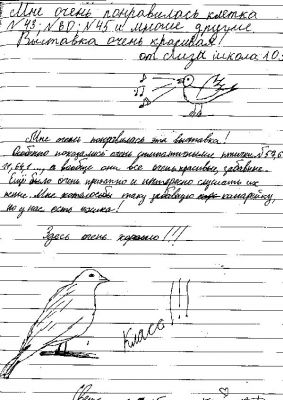 Мне очень понравилась клетка
N 43; N 60; N 45 и многие другие
Выставка очень красивая!
от Лизы школа 10.
Мне очень понравилась эта выставка!
Особенно показались очень симпатичными птички N 59,6
11,64, а вообще они все очень красивые, забавные.
Ещё было очень приятно и интересно слушать их
пение. Мне хотелось бы такую забавную канарейку,
но у нас есть кошка!
Здесь очень хорошо!!!
Класс!!!